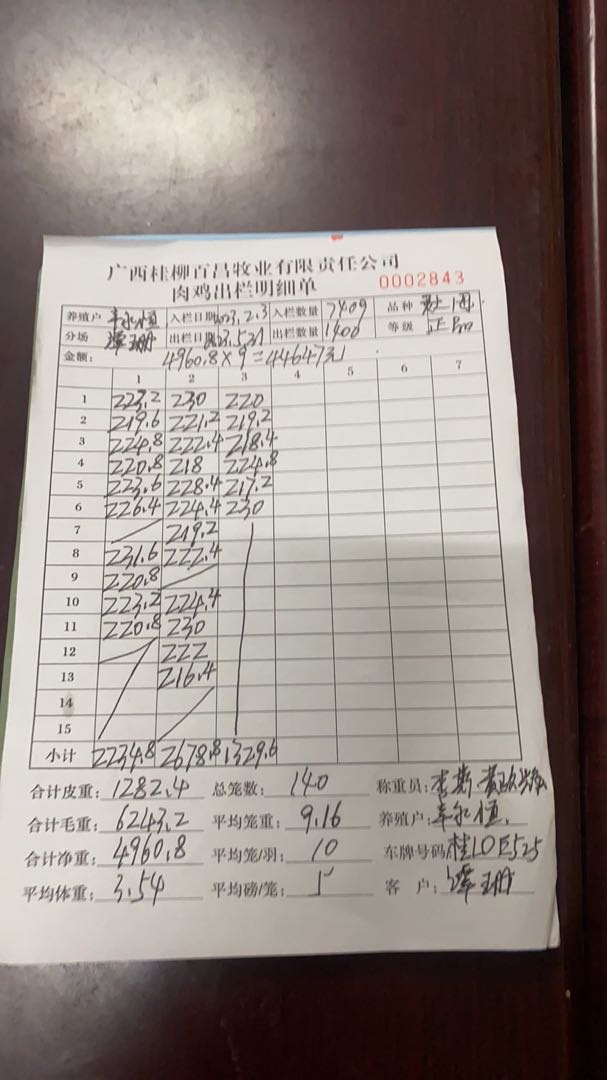 广西桂柳百昌牧业有限责任公司
肉鸡出栏明细单 0002843
养殖户 韦永恒 入栏日期 2023.2.3 入栏数量 7409 品种
分场 谭珊 出栏日期 2023.5.21 出栏数量 1400 等级 正品
金额: 4960.8×9=44647元
1 2 3 4 5 6 7
1 223.2 230 220
2 219.6 221.2 219.2
3 224.8 222.4 218.4
4 220.8 218 224.8
5 223.6 228.4 217.2
6 226.4 224.4 230
7 219.2
8 231.6 222.4
9 220.8
10 223.2 224.4
11 220.8 230
12 222
13 216.4
14
15
小计 2234.8 2678.8 1329.6
合计皮重: 1282.4 总笼数: 140 称重员: 李斯
合计毛重: 6243.2 平均笼重: 9.16 养殖户: 韦永恒
合计净重: 4960.8 平均笼/羽: 10 车牌号码: 桂L0E525
平均体重: 3.54 平均磅/笼: 5 客户: 谭珊